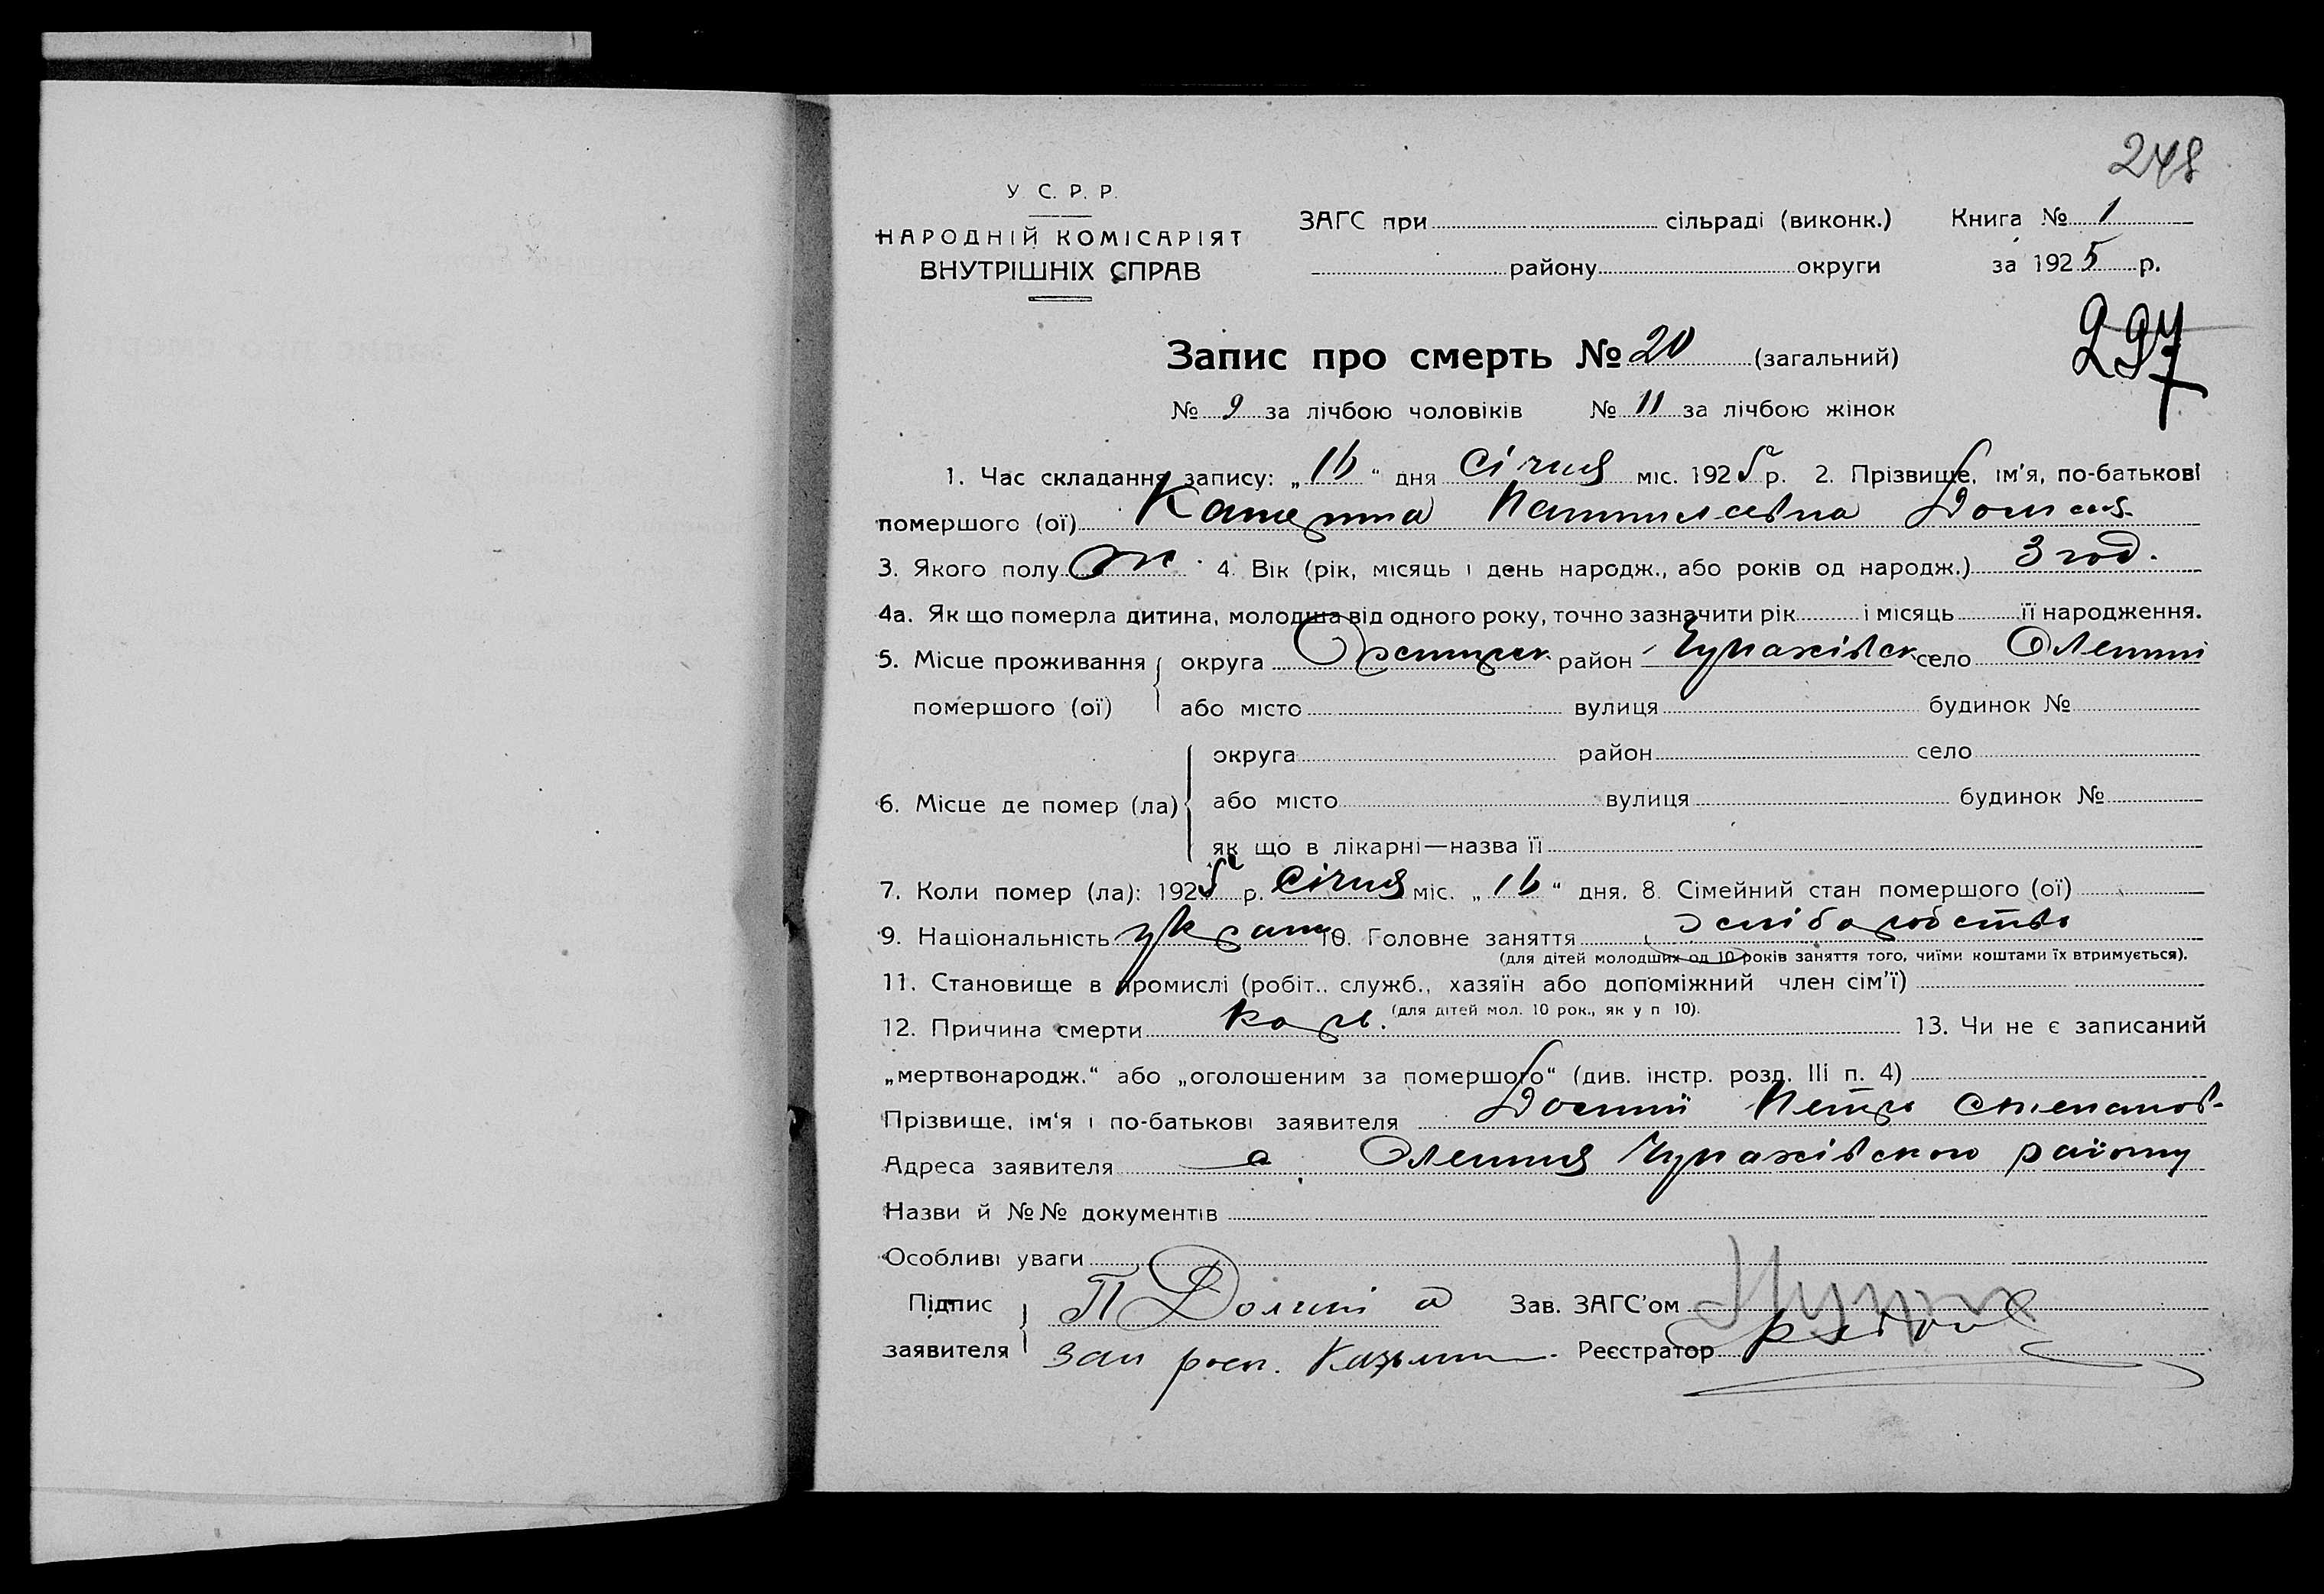 248
У. С. Р. Р.
НАРОДНІЙ КОМІСАРІЯТ
ВНУТРІШНІХ СПРАВ
ЗАГС при сільраді (виконк.) Книга № 1
району округи за 1925 р.
297
Запис про смерть № 20 (загальний)
№ 9 за лічбою чоловіків № 11 за лічбою жінок
1. Час складання запису: „16“ дня Січня міс. 1925 р. 2. Прізвище, ім'я, по-батькові
помершого (ої) Катерина
3. Якого полу ж. 4. Вік (рік, місяць і день народж., або років од народж.) 3 год.
4а. Як що померла дитина, молодша від одного року, точно зазначити рік і місяць її народження.
5. Місце проживання округа район Чупахівск село Олешні
помершого (ої) або місто вулиця будинок №
округа район село
6. Місце де помер (ла) або місто вулиця будинок №
як що в лікарні—назва її
7. Коли помер (ла): 1925 р. Січня міс. „16“ дня. 8. Сімейний стан помершого (ої)
9. Національність украин 10. Головне заняття хліборобство
(для дітей молодших од 10 років заняття того, чиїми коштами їх втримується).
11. Становище в промислі (робіт., служб., хазяїн або допоміжний член сім'ї)
(для дітей мол. 10 рок., як у п 10).
12. Причина смерти корь. 13. Чи не є записаний
„мертвонародж.“ або „оголошеним за помершого“ (див. інстр. розд. III п. 4)
Прізвище, ім'я і по-батькові заявителя Петро Степанов-
Адреса заявителя с. Олешня Чупахівского району
Назви й №№ документів
Особливі уваги
Підпис П Зав. ЗАГС'ом
заявителя Реєстратор